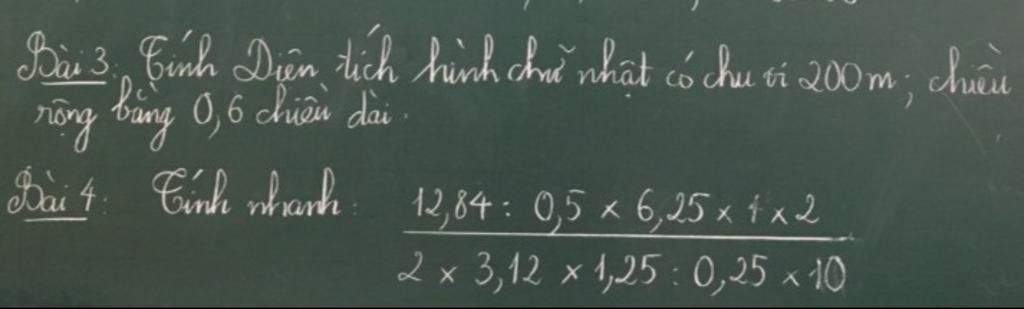 Bài 3: Tính Diện tích hình chữ nhật có chu vi 200m; chiều
rộng bằng 0,6 chiều dài.
Bài 4: Tính nhanh: 12,84 : 0,5 × 6,25 × 4 × 2
2 × 3,12 × 1,25 : 0,25 × 10